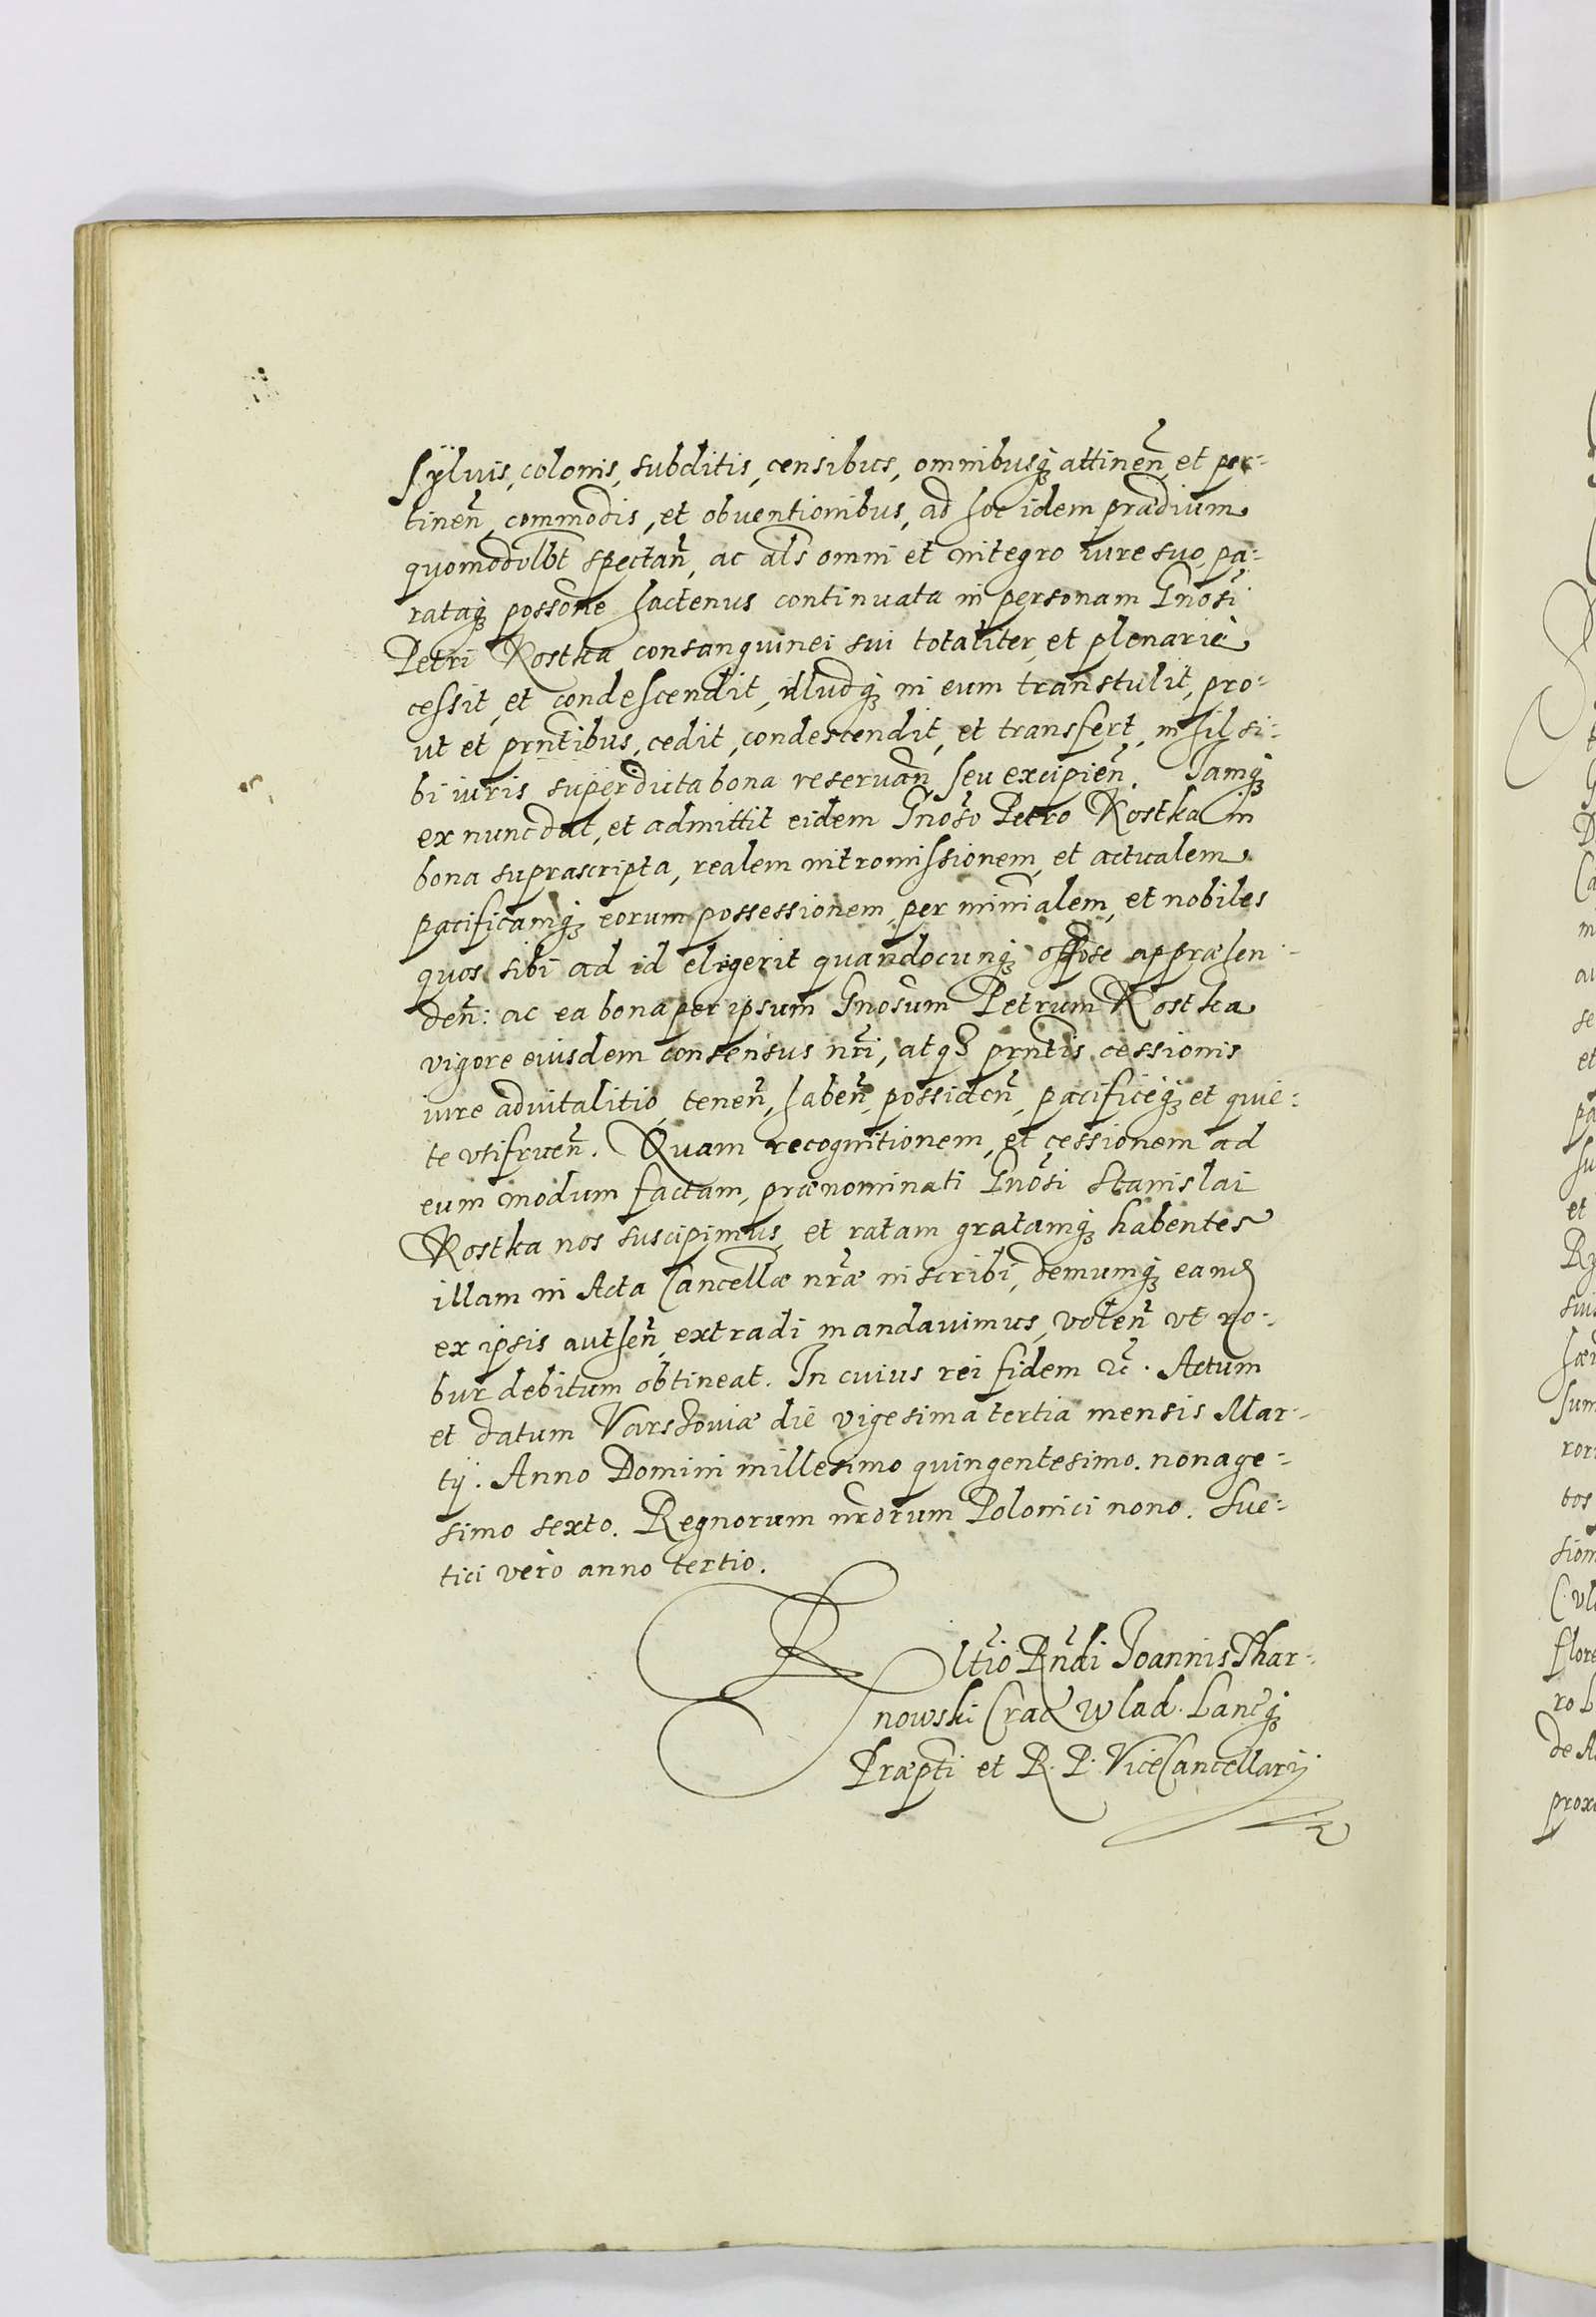 sÿluis, colonis, subditis, censibus, omnibusq₃ attineñ, et per-
tineñ, commodis, et obuentionibus, ad hoc idem prædium
quomodolbt spectañ, ac als omni et integro iure suo, pa-
rataq₃ possone hactenus continuata in personam Gnosi
Petri Rostka consanguinei sui totaliter et plenariè
cessit, et condescendit, illudq₃ in eum transtulit, pro-
ut et prntibus, cedit, condescendit, et transfert, nihil si-
bi iuris super dicta bona reseruañ, seu excipieñ. Iamq₃
ex nunc dat, et admittit eidem Gnoso Petro Rostka in
bona suprascripta, realem intromissionem, et actualem
pacificamq₃ eorum possessionem, per minialem, et nobiles
quos sibi ad id elegerit quandocunq₃ appræhen-
deñ: ac ea bona per ipsum Gnosum Petrum Rostka
vigore eiusdem consensus nri, atq₃ prntis cessionis
iure aduitalitio, teneñ, habeñ, possideñ, pacificeq₃ et quie-
te vtifrueñ. Quam recognitionem, et cessionem ad
eum modum factam, prænominati Gnosi Stanislai
Rostka nos suscipimus, et ratam gratamq₃ habentes
illam in Acta Cancellæ nræ inscribi, demumq₃ eand
ex ipsis autheñ, extradi mandauimus, voleñ vt ro-
bur debitum obtineat. In cuius rei fidem &c. Actum
et datum Varshouiæ die vigesima tertia mensis Mar-
tij. Anno Domini millesimo quingentesimo. nonage-
simo sexto. Regnorum nrorum Polonici nono. Sue-
tici vero anno tertio.
Rltio Rndi Joannis Thar-
nowski Crac Wlad. Lancq₃
Præpti et R. P. ViceCancellarij